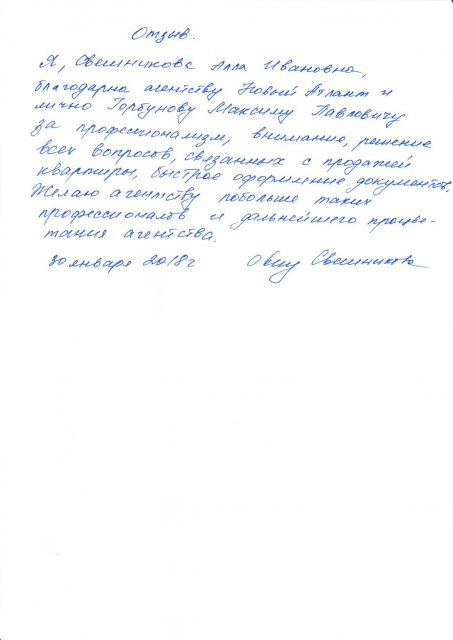 Отзыв.
Я, Свешникова Алла Ивановна,
благодарна агентству Новый Атлант и
лично Горбунову Максиму Павловичу
за профессионализм, внимание, решение
всех вопросов, связанных с продажей
квартиры, быстрое оформление документов.
Желаю агентству побольше таких
профессионалов и дальнейшего процве-
тания агентства.
30 января 2018 г Свешникова